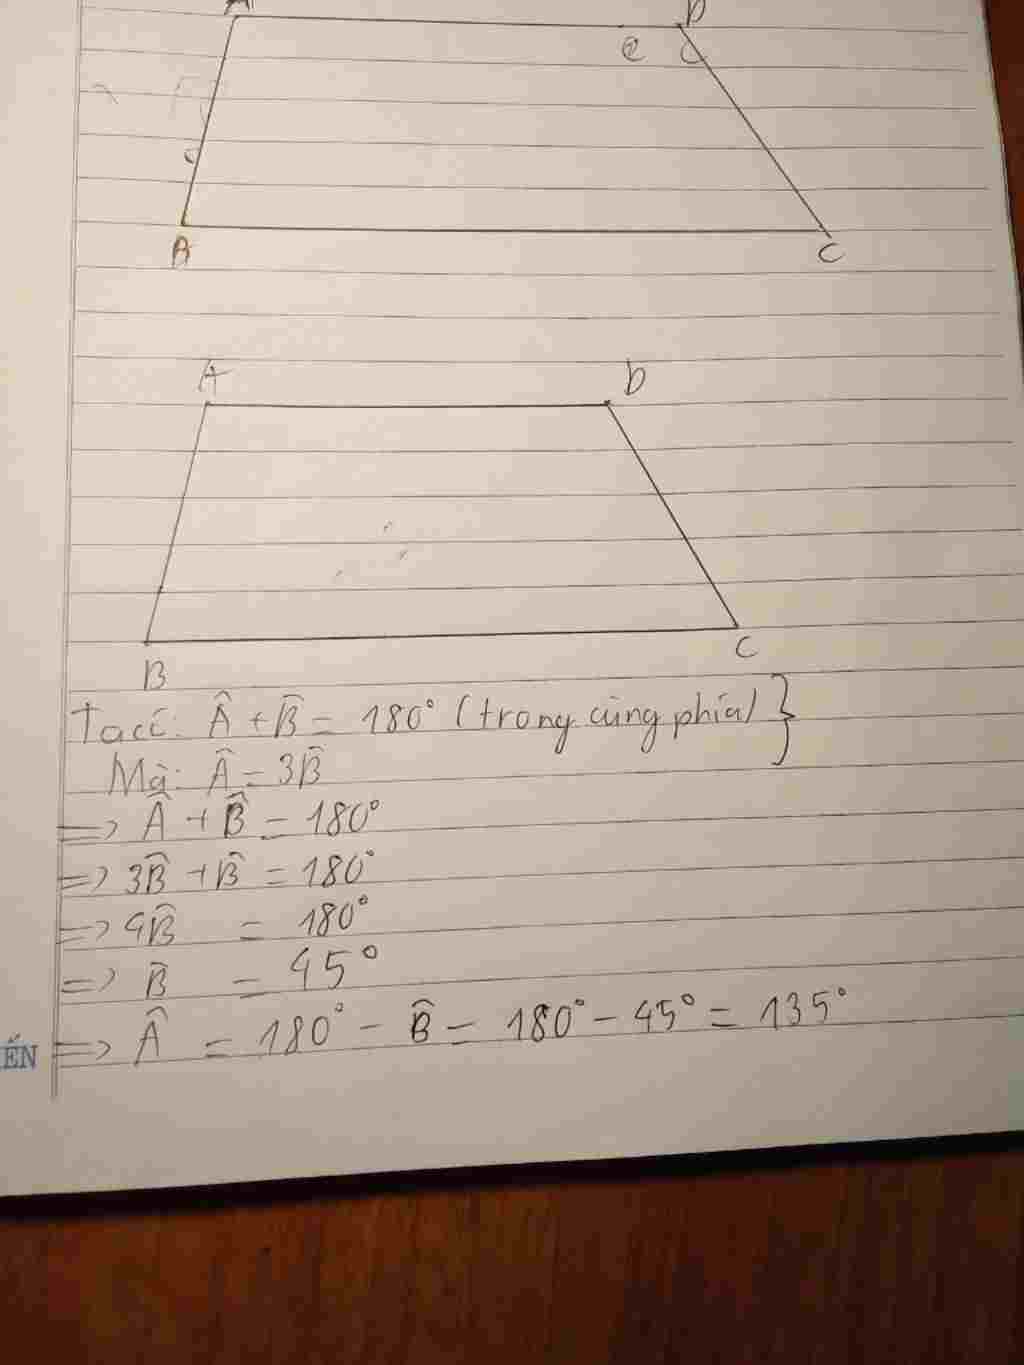 A D
e C
A C
A D
B C
Ta có: Â + B̂ = 180° (trong cùng phía)}
Mà: Â = 3B̂
=> Â + B̂ = 180°
=> 3B̂ + B̂ = 180°
=> 4B̂ = 180°
=> B̂ = 45°
=> Â = 180° - B̂ = 180° - 45° = 135°
ẾN